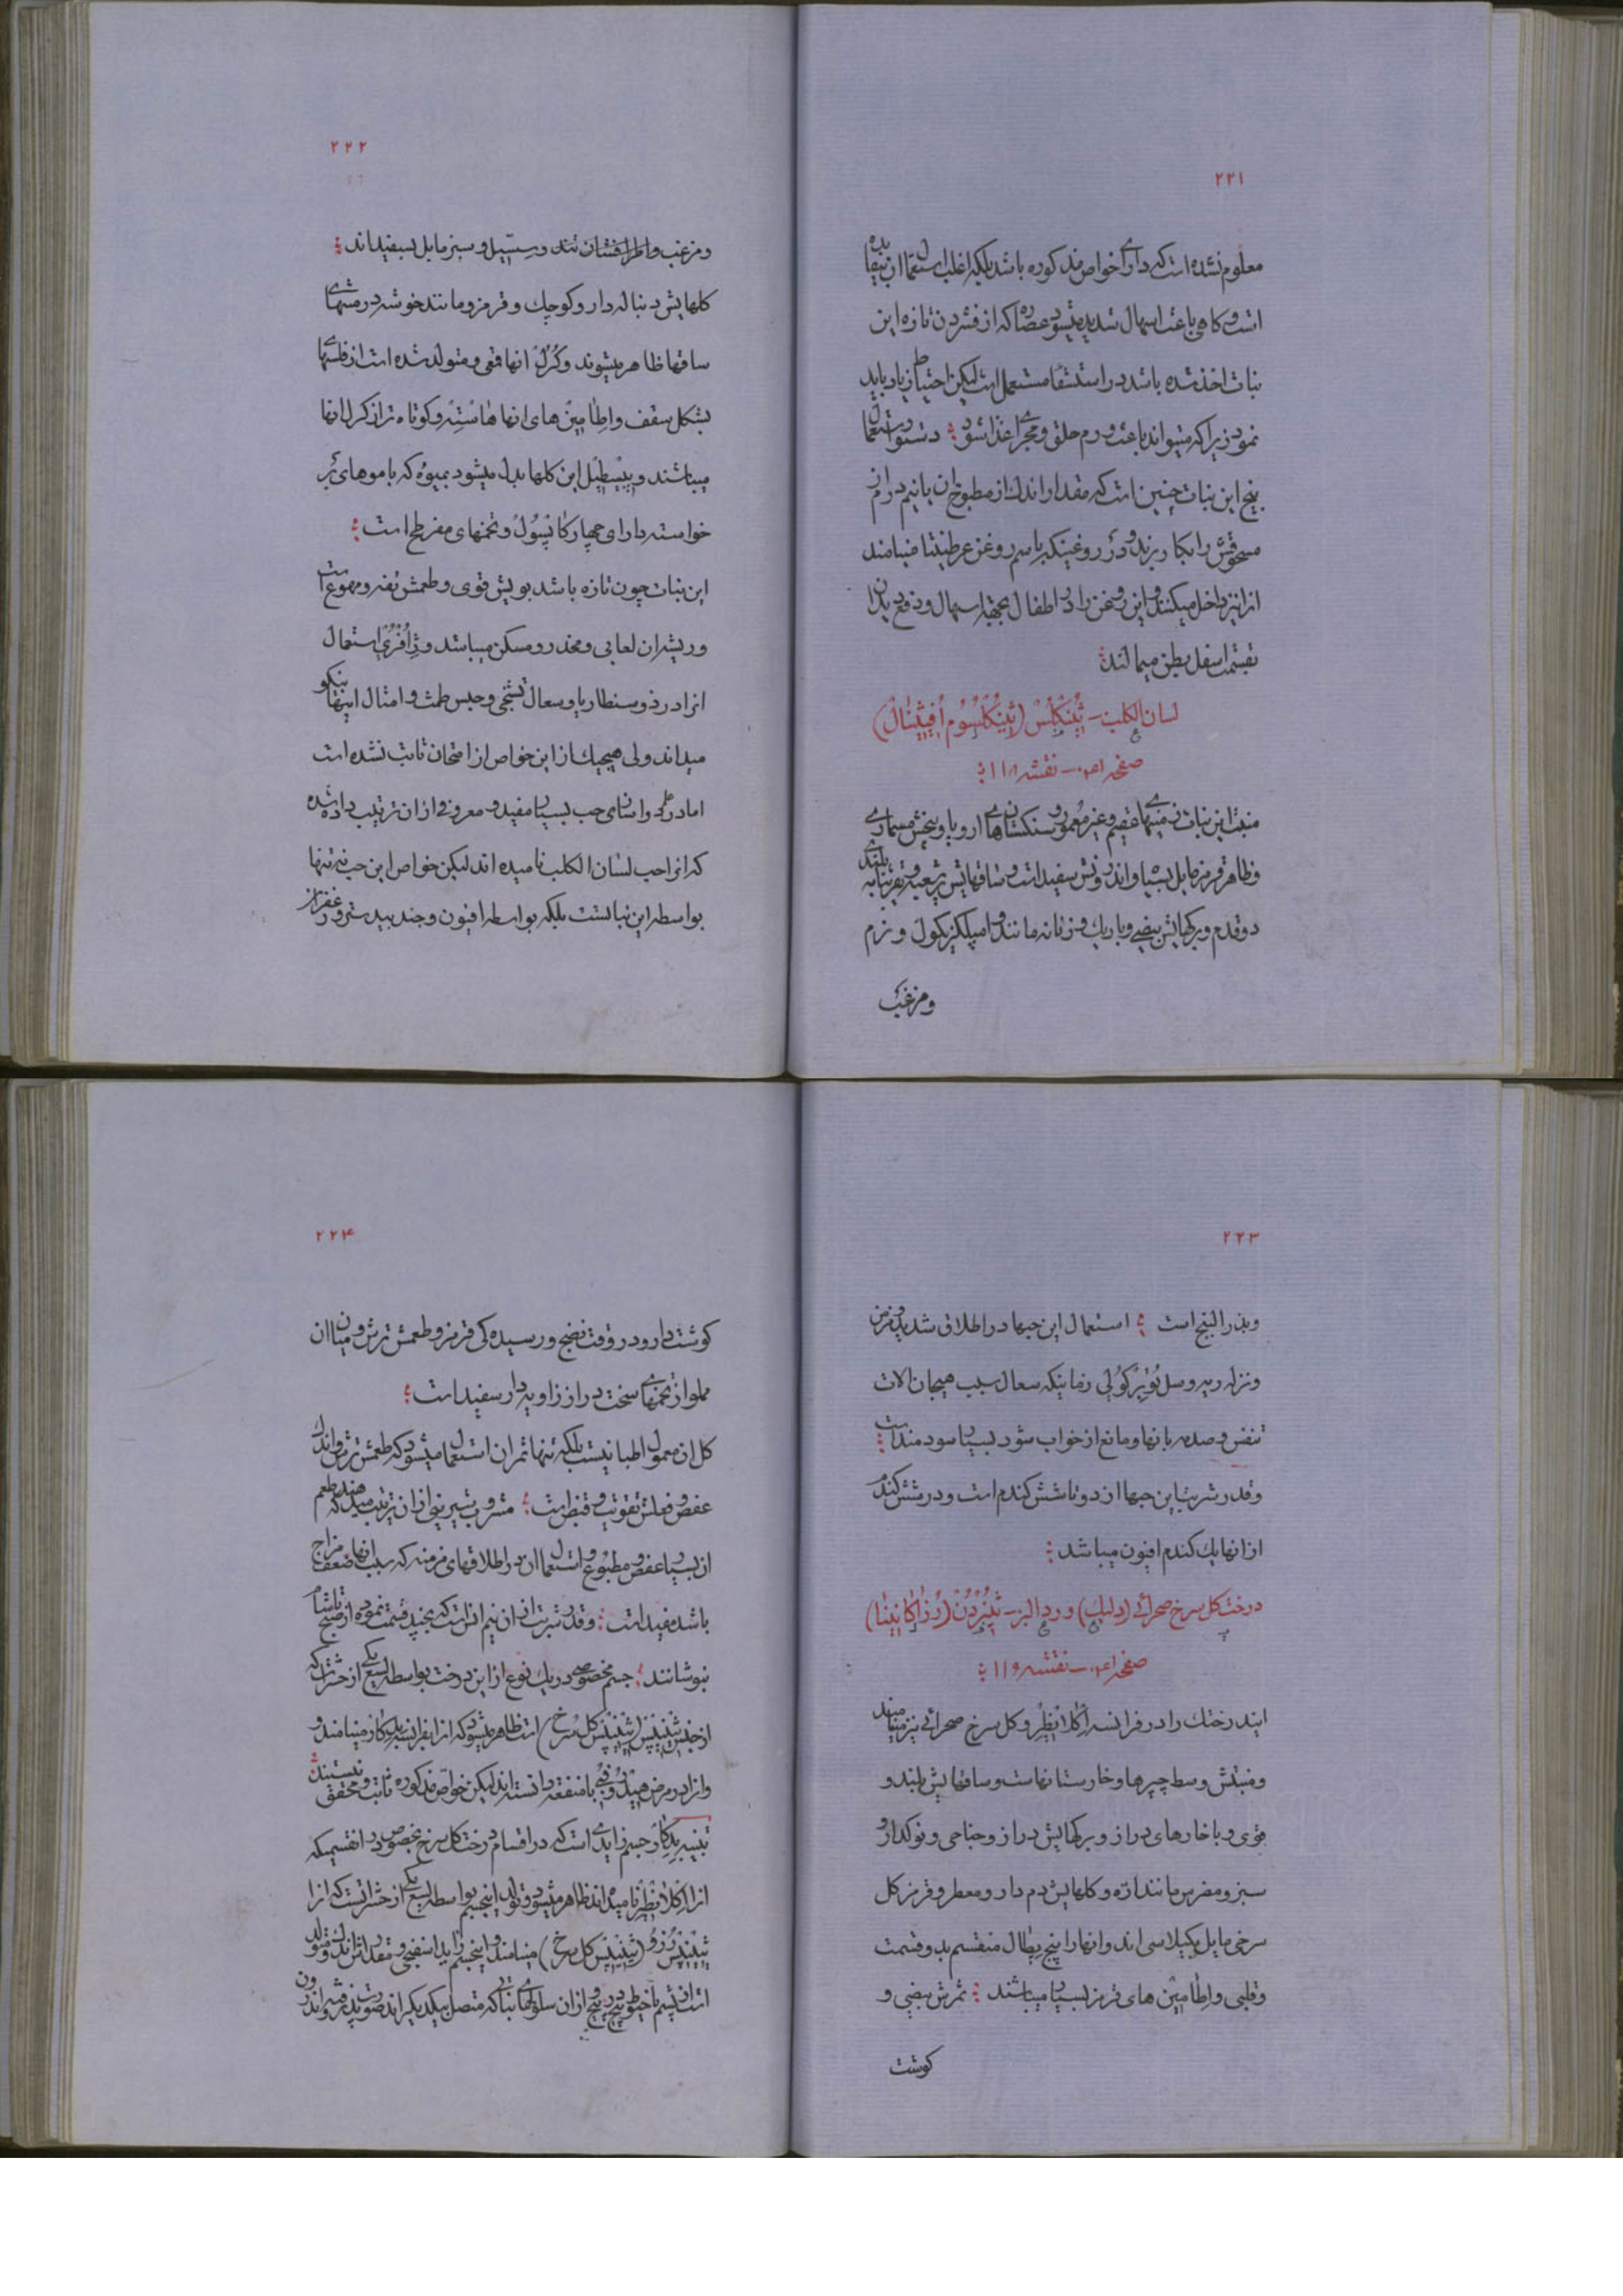 ۲۲۱
معلوم نشده است که دارای خواص مذکوره باشد بلکه اغلب استعمال ان بیفایده
است و کاهی باعث اسهال شدید میشود عصاره که از فشردن تازه این
نبات اخذ شده باشد در استسقا مستعمل است لیکن احتیاط زیاد باید
نمود زیرا که میتواند باعث ورم حلق و مجرای غذا شود ؛ دستور استعمال
بیخ این نبات چنین است که مقدار اندک از مطبوخ ان یا نیم درام از
مسحوقش را بکار برند و در روغنیکه باسم روغن عرطنیثا مینامند
انرا نیز داخل میکنند و این روغن را در اطفال بجهة اسهال و دفع دیدان
بقسمت اسفل بطن میمالند ؛
لسان الکلب – ثِینُکلُسْ (ثِینُکلُسُوم اُفِیثِینالْ)
صفحه ۱۴۰ – نقشه ۱۱۸ ؛
منبت این نبات زمینهای عقیم و غیر معمور و سنکستان های اروپا و بیخش مسماری
و ظاهر قرمز مایل بسیاه و اندرونش سفید است و ساقهایش پر شعبه و تقریبا ببلندی
دو قدم و برکهایش بیضی و باریک و زنانه مانند و امپلکزیکول و نرم
و مزغب
۲۲۲
و مزغب و اطراقشان تند و سسیل و سبز مایل بسفیداند ؛
کلهایش دنباله دار و کوچک و قرمز و مانند خوشه در منتهای
ساقها ظاهر میشوند و کُرُلْ انها قمعی و متولد شده است از فلسها
بشکل سقف و اطامین های انها هاسته و کوتاه تر از کرل انها
میباشند و پیسطیل این کلها بدل میشود بمیوه که با موهای بُر
خواسته دارای چهار کاپسُولْ و تخمهای مفرطح است ؛
این نبات چون تازه باشد بویش قوی و طعمش تفه و مهوع است
و ریشه ان لعابی و مخدر و مسکن میباشد و ژاُفْرُی استعمال
انرا در ذوسنطاریا و سعال تشنجی و حبس طمث و امثال اینها نیکو
میداند ولی هیچیک از این خواص از امتحان ثابت نشده است
اما در طب دانای حب بسیار مفید و معروفی از ان ترتیب داده شده
که انرا حب لسان الکلب نامیده اند لیکن خواص این حب نه تنها
بواسطه این نباتست بلکه بواسطه افیون و جند بیدستر و زعفران
۲۲۳
و بذر البنج است ؛ استعمال این حبها در اطلاق شدید و مزمن
و نزله ریه و سل تُوبِرْکُولی زمانیکه سعال سبب هیجان الات
تنفس و صدمه بانها و مانع از خواب شود بسیار سودمند است ؛
و قدر شربت این حبها از دو تا شش کندم است و در شش کندم
از انها یک کندم افیون میباشد ؛
درخت کل سرخ صحرائی (دلیک) ورد البر – ثِینُرُدُنْ (رُزاکانِینا)
صفحه ۱۴۰ – نقشه ۱۱۹ ؛
ایندرختک را در فرانسه اِکلانطِرْ و کل سرخ صحرائی نیز مینامند
و منبتش وسط چپرها و خارستانهاست و ساقهایش بلند و
قوی و با خارهای دراز و برکهایش دراز و جناحی و نوکدار و
سبز و مضرس مانند ارّه و کلهایش دم دار و معطر و قرمز کل
سرخی مایل بکیلاسی اند و انها را پنج پطال منقسم بدو قسمت
و قلبی و اطامین های قرمز بسیار میباشند ؛ ثمرش بیضی و
کوشت
۲۲۴
کوشت دار و در وقت نضج و رسیده کی قرمز و طعمش ترش و میان ان
مملو از تخمهای سخت دراز زاویه دار سفید است ؛
کل ان معمول اطبا نیست بلکه تنها ثمر ان استعمال میشود که طعمش ترش و اندک
عفص و فعلش تقویت و قبض است ؛ مشروب شیرینی از ان ترتیب میدهند که طعم
ان بسیار عفص و مطبوع و استعمال ان در اطلاقهای مزمنه که سبب انها ضعف مزاج
باشد مفید است ؛ و قدر شربت ان از نیم انس است که بچند قسمت نموده از صبح تا شام
بنوشانند ؛ جسم مخصوصی در یک نوع از این درخت بواسطه لسع یکی از حشرات که
از جنس ثینِیپْس (ثینِیپْس کل سرخ) است ظاهر میشود که انرا بفرانسه بِدِکار مینامند و
و انرا در مرض هیدرُوفُبی با منفعة دانسته اند لیکن خواص مذکوره ثابت و محقق نیستند ؛
تنبیه بِدِکارْ جسم زایدی است که در اقسام درخت کل سرخ بخصوص در انقسمیکه
انرا اِکلانطِرْ نامیده اند ظاهر میشود و تولد اینجسم بواسطه لسع یکی از حشراتست که انرا
ثِینِیپْس رُزُو (ثِینِیپْس کل سرخ) مینامند و اینجسم زاید اسفنجی و بقدر